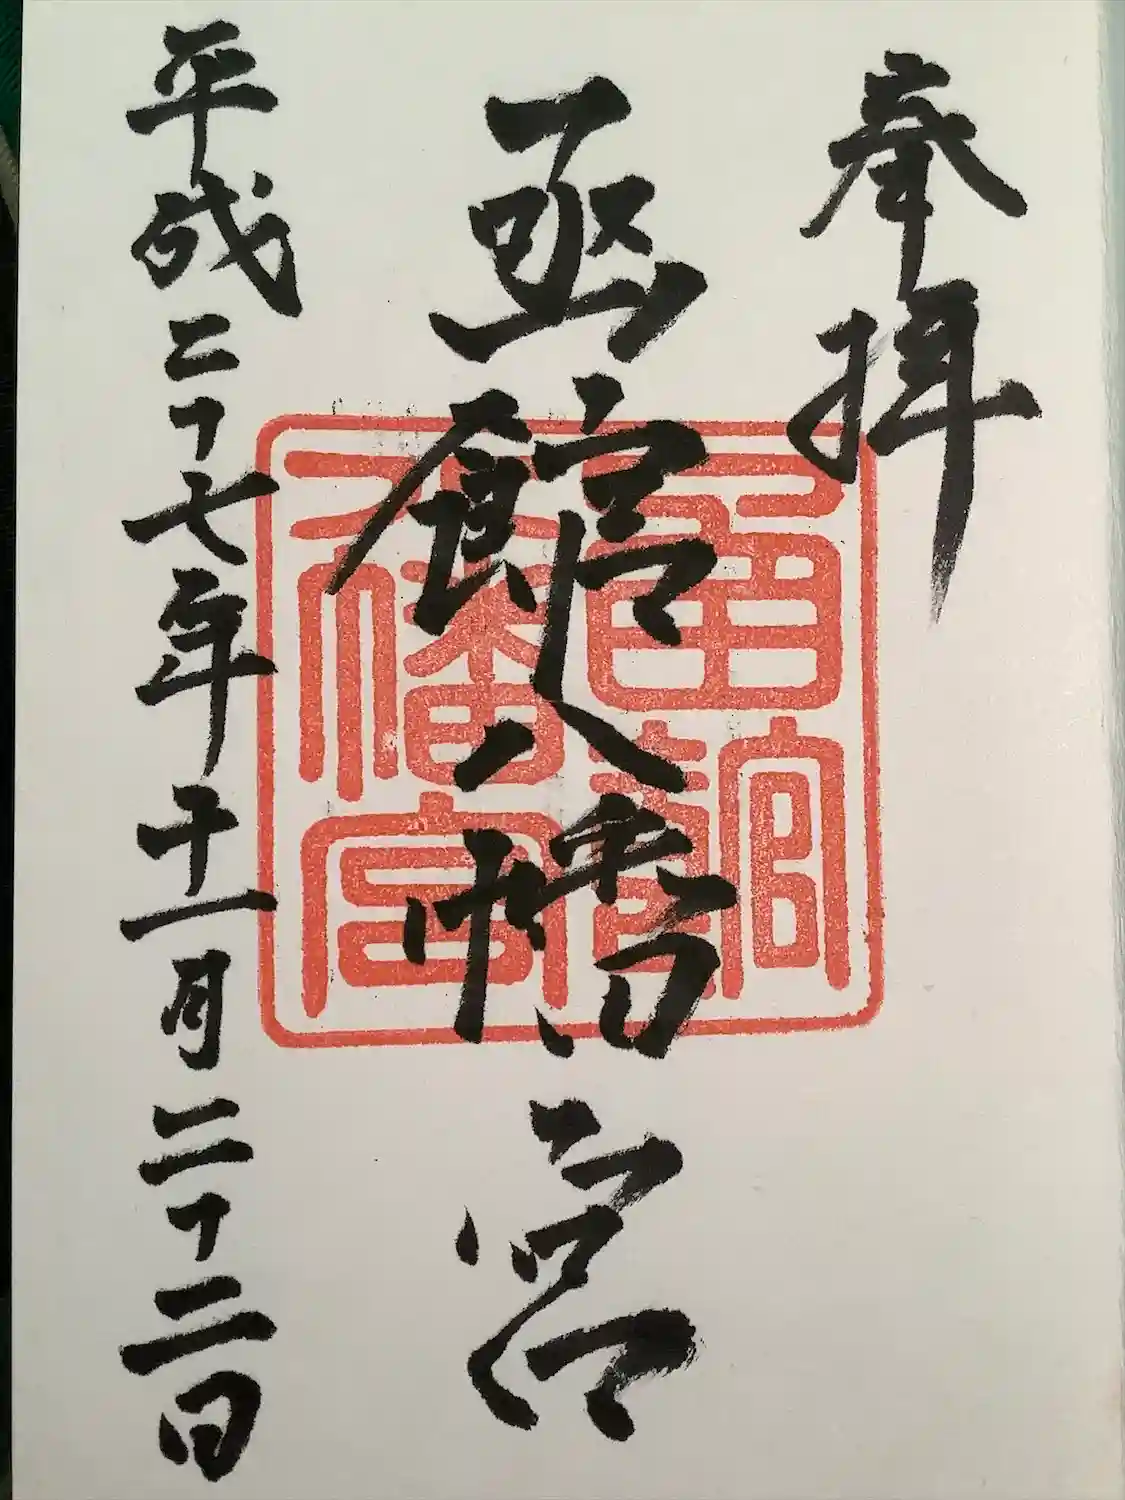 奉拝
函館八幡宮
平成二十七年十一月二十二日
函館八幡宮